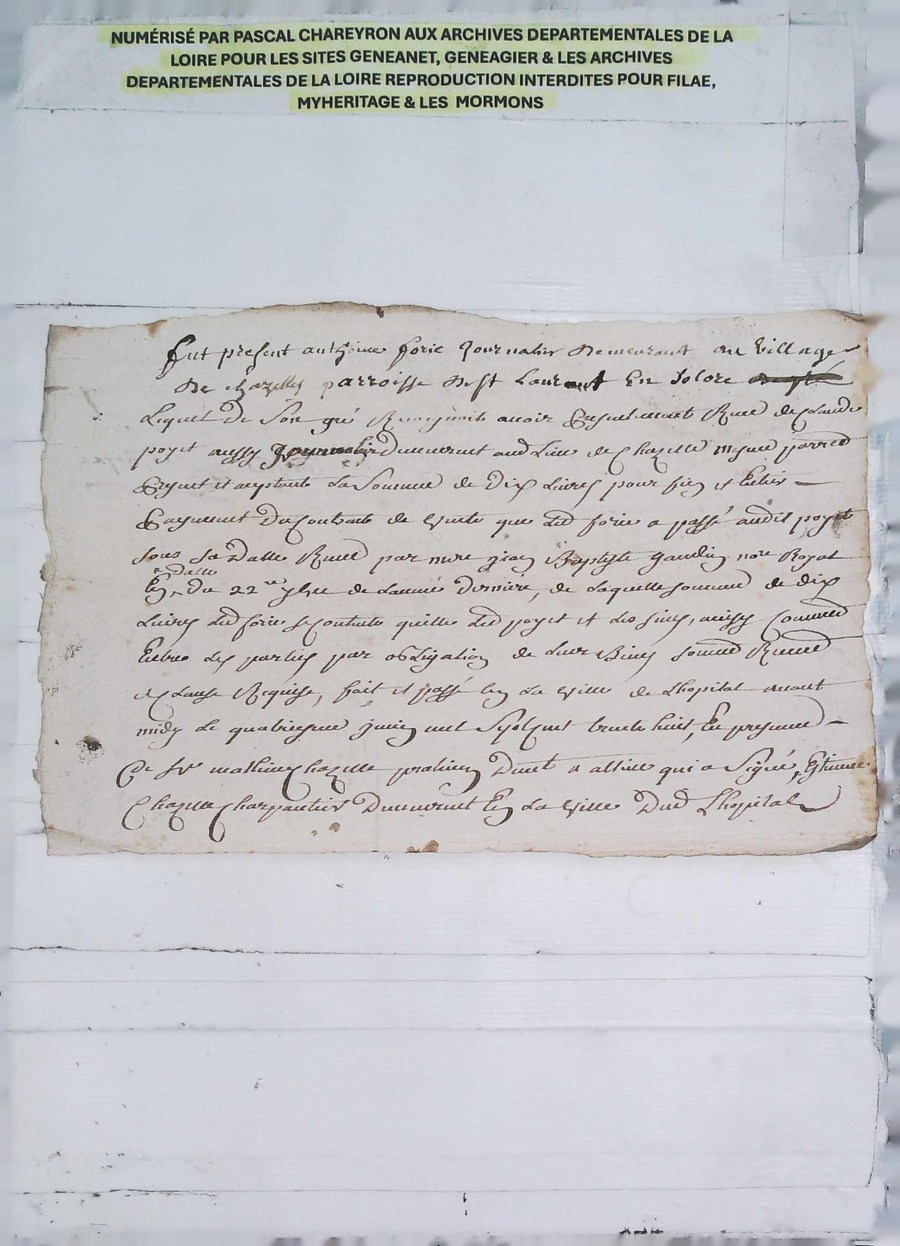 NUMÉRISÉ PAR PASCAL CHAREYRON AUX ARCHIVES DEPARTEMENTALES DE LA
LOIRE POUR LES SITES GENEANET, GENEAGIER & LES ARCHIVES
DEPARTEMENTALES DE LA LOIRE REPRODUCTION INTERDITES POUR FILAE,
MYHERITAGE & LES MORMONS
fut present anthoine forie Journalier demeurant au village
de chazelles parroisse de st Laurent En Solore
Lequel de Son gré avoir Reeu de Claude
poyet aussy Journalier Demeurant aud Lieu de Chazelle mesme parred
la Somme de Dix Livres pour fin et Entier
Payement Du Contract de vente que Led forie a passé audit poyet
sous sa datte Reeu par mre jean Baptiste gaudin nore Royal
En datte
Du 22me de Lannée Derniere, de Laquelle somme de dix
Livres Led forie se Contente quitte Led poyet et Les siens, aussy Comme
Entre Les parties par obligation de Leur Biens
Clause Requise, fait et passé En La ville de Lhopital avant
midy Le quatriesme juin mil Sept Cent trente huit, En presence
de Sr mathieu Chazelle praticien Duel a attire qui a Signé, Estienne
Chazelle Charpantier Demeurant En La ville Dud Lhopital